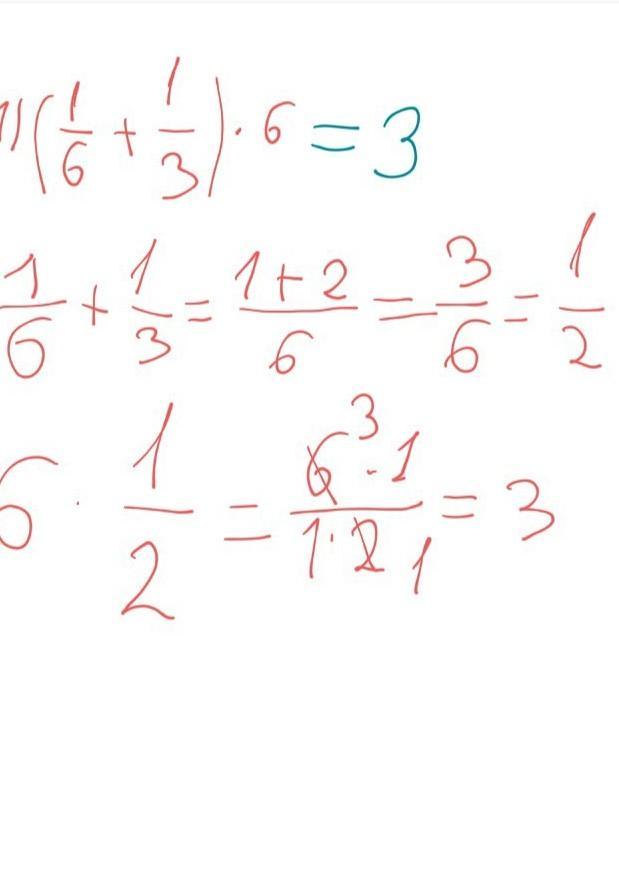 1) (1/6 + 1/3) · 6 = 3
1/6 + 1/3 = 1+2/6 = 3/6 = 1/2
6 · 1/2 = 6 3 · 1/1 · 2 1 = 3